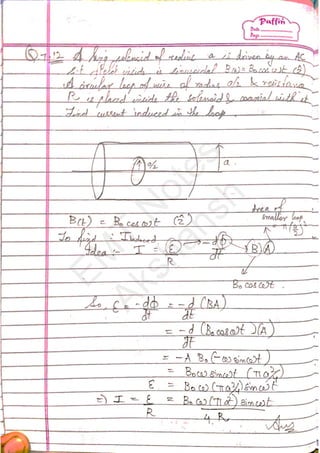 Puffin
Date
Page
Q 7.12 A long solenoid of radius a is driven by an AC
s.t. field inside is sinusoidal B(t) = B₀ cos ωt (ẑ)
A circular loop of wire of radius a/2 & resistance
R is placed inside the solenoid & coaxial with it
Find current induced in the loop
a/2
a
Area of
smaller loop
= π(a/2)²
B(t) = B₀ cos ωt (ẑ)
To find : I induced
Idea :- I = ε/R → -dΦ/dt → (B)(A)
B₀ cos ωt.
So, ε = -dΦ/dt = -d/dt (BA)
= -d/dt (B₀ cos ωt)(A)
= -A B₀ (-ω sin ωt)
= B₀ω sin ωt (πa²/4)
ε = B₀ω (πa²/4) sin ωt
⇒ I = ε/R = B₀ω(πa²) sin ωt / 4R
Ans
EMT Notes
Akshansh